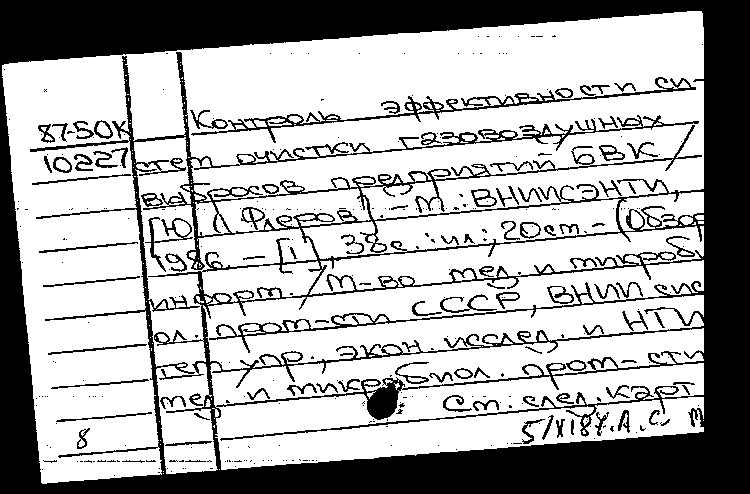 Контроль эффективности си-
87-50К
10227 стем очистки газовоздушных
выбросов предприятий БВК /
[Ю. Л. Флеров]. - М.: ВНИИСЭНТИ,
1986. - [1], 38 с. : ил.; 20 см. - (Обзор.
информ. / М-во мед. и микроби
ол. пром-сти СССР, ВНИИ сис
тем упр., экон. исслед. и НТИ
мед. и микробиол. пром-сти
См. след. карт
8 5/XI87. А.С. М